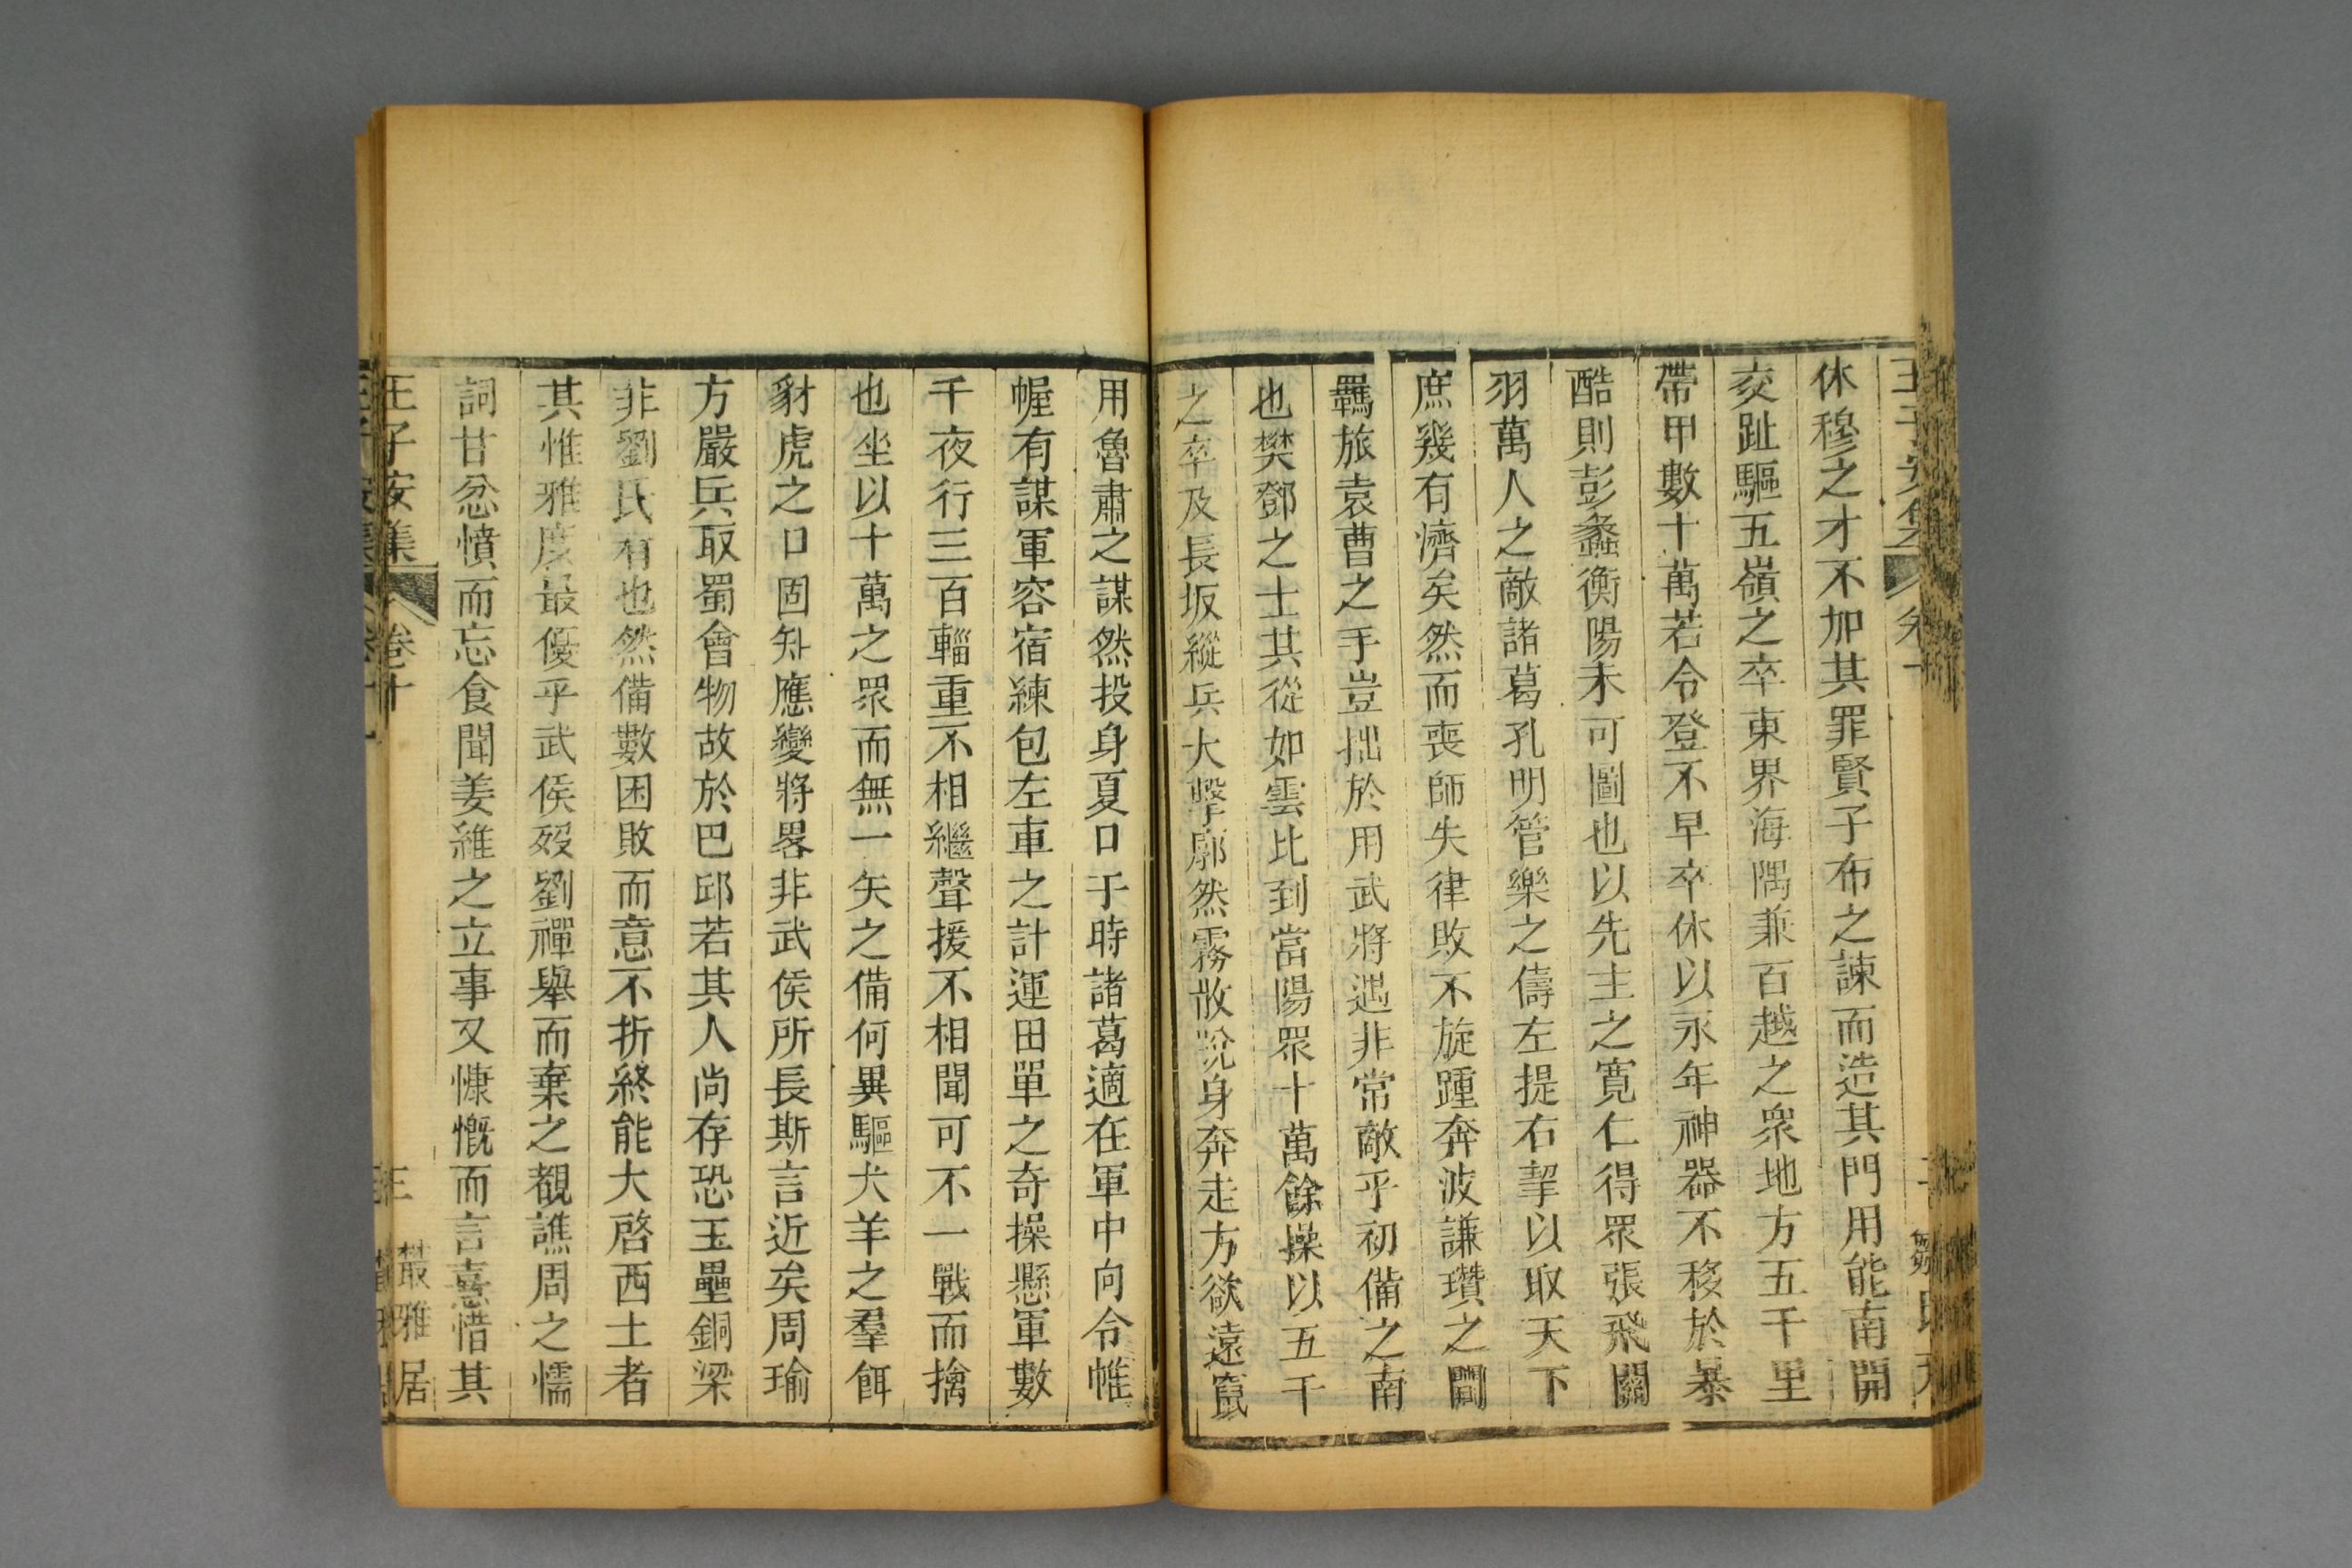 休穆之才不加其罪賢子布之諫而造其門用能南開
交趾驅五嶺之卒東界海隅兼百越之衆地方五千里
帶甲數十萬若令登不早卒休以永年神器不移於暴
酷則彭蠡衡陽未可圖也以先主之寬仁得眾張飛關
羽萬人之敵諸葛孔明管樂之儔左提右挈以取天下
庶幾有濟矣然而喪師失律敗不旋踵奔波謙瓚之間
羈旅袁曹之手豈拙於用武將遇非常敵乎初備之南
也樊鄧之士其從如雲比到當陽眾十萬餘操以五千
之卒及長坂縱兵大擊廓然霧散脫身奔走方欲遠竄
用魯肅之謀然投身夏口于時諸葛適在軍中向令帷
幄有謀軍容宿練包左車之計運田單之奇操懸軍數
千夜行三百輜重不相繼聲援不相聞可不一戰而擒
也坐以十萬之眾而無一矢之備何異驅犬羊之羣餌
豺虎之口固知應變將畧非武侯所長斯言近矣周瑜
方嚴兵取蜀會物故於巴邱若其人尚存恐玉壘銅梁
非劉氏有也然備數困敗而意不折終能大啓西土者
其惟雅度最優乎武侯歿劉禪舉而棄之覩譙周之懦
詞甘忿憤而忘食聞姜維之立事又慷慨而言憙惜其
王子安集 卷十 三 叢雅居